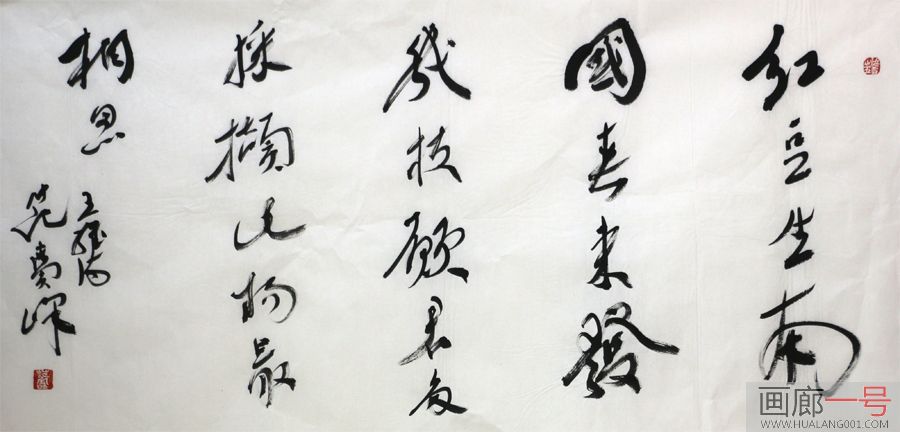 红豆生南
國春来發
几枝願君多
採擷此物最
相思
王維句
画廊一号
WWW.HUALANG001.COM